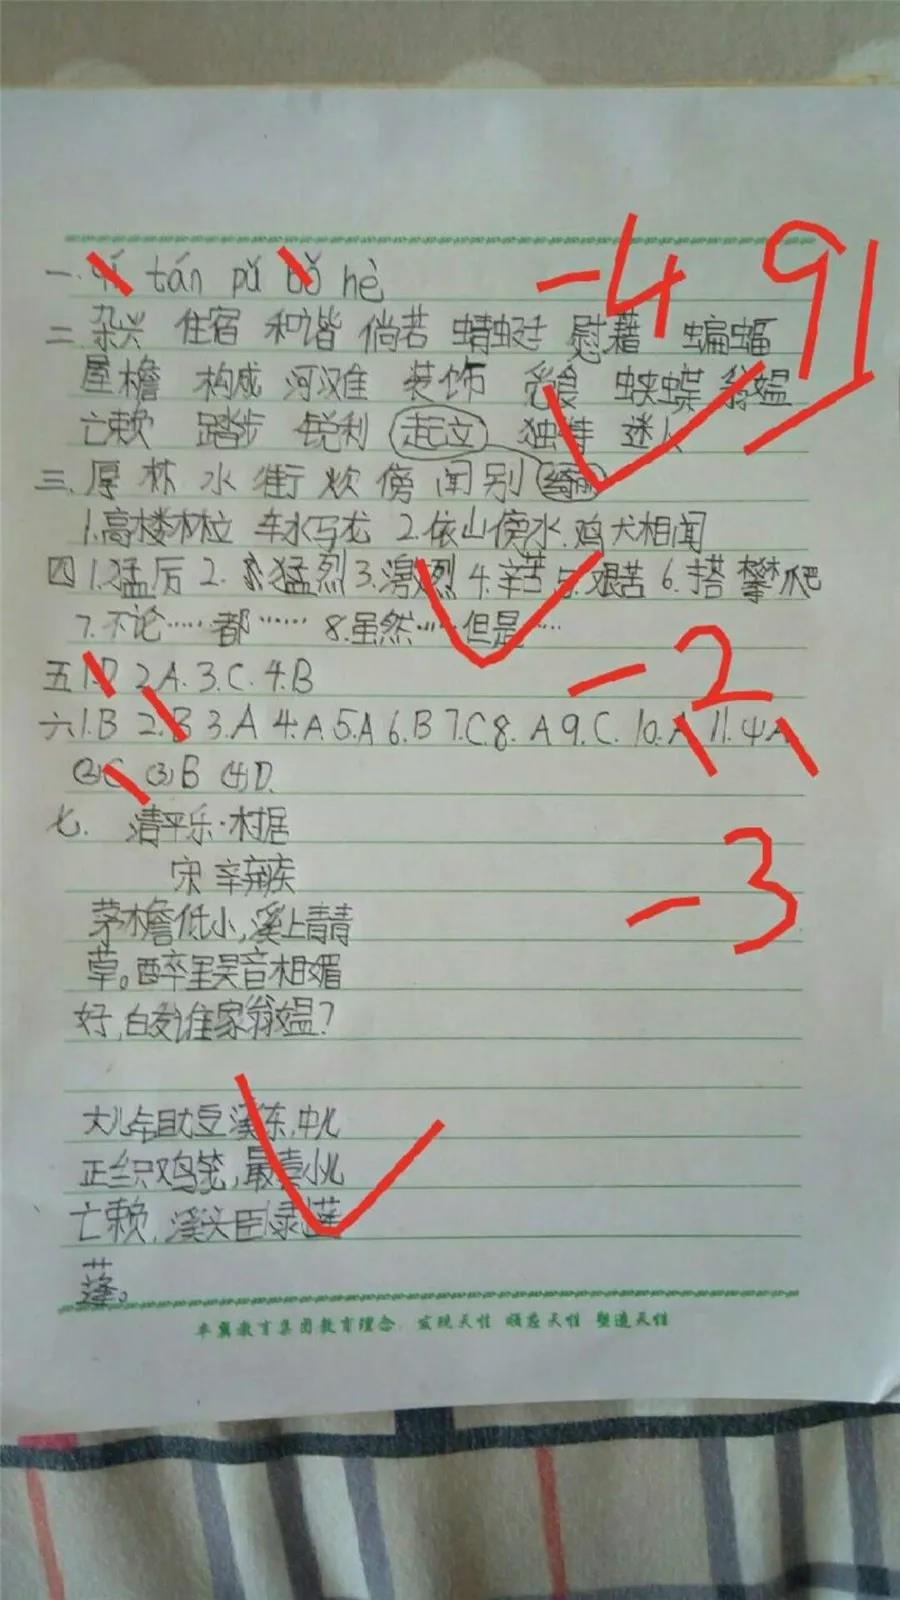 一. tán pǔ hè -4 91
二. 杂兴 住宿 和谐 倘若 蜻蜓 慰藉 蝙蝠
屋檐 构成 河滩 装饰 觅食 蛱蝶 翁媪
亡赖 踏步 锐利 起立 独特 迷人
三. 厚 林 水 街 炊 傍 闻 别
1.高楼林立 车水马龙 2.依山傍水.鸡犬相闻
四 1.猛厉 2. 猛烈 3.激烈 4.辛苦 5.艰苦 6.搭 攀爬
7.不论……都…… 8.虽然……但是……
五 1.D 2A.3.C.4.B -2
六1.B 2.B 3.A 4.A 5.A 6.B 7.C 8. A 9.C. 10.A 11.4A
(2)C (3)B (4)D.
七. 清平乐·村居
宋 辛弃疾 -3
茅檐低小,溪上青青
草。醉里吴音相媚
好,白发谁家翁媪?
大儿锄豆溪东,中儿
正织鸡笼,最喜小儿
亡赖,溪头卧剥莲
蓬。
丰翼教育集团教育理念:发现天性 顺应天性 塑造天性